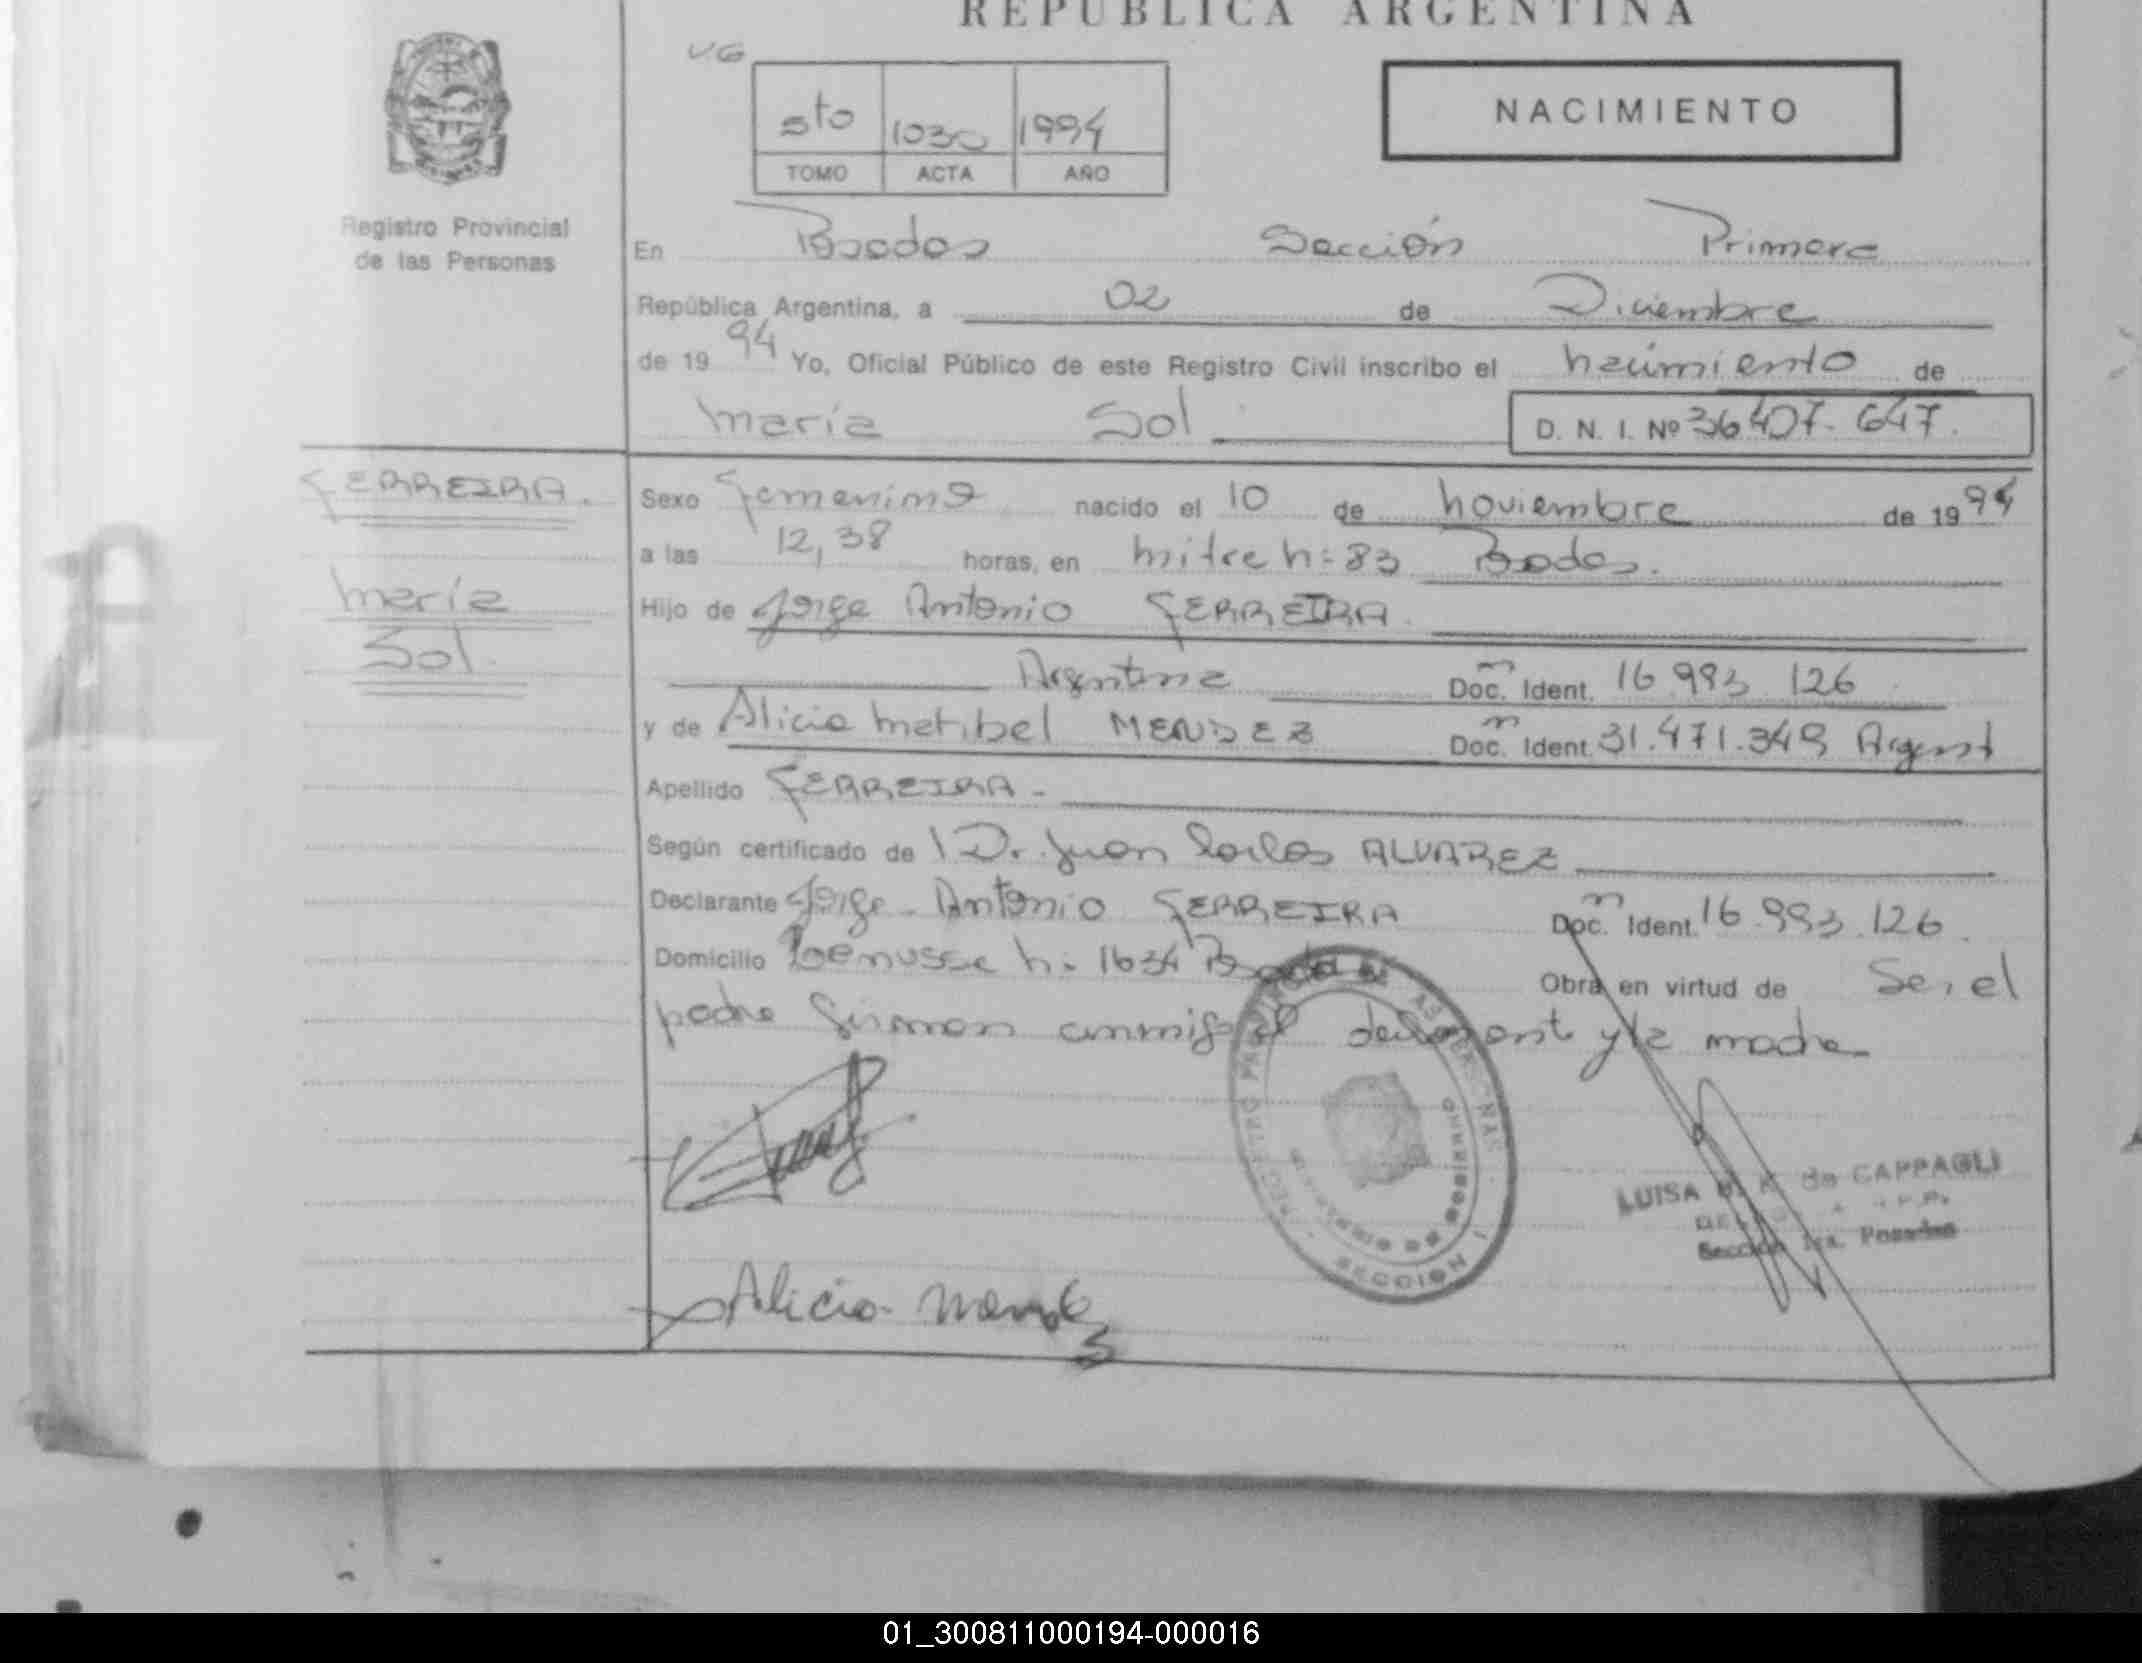 REPUBLICA ARGENTINA
V.G
5to 1030 1994
TOMO ACTA AÑO
NACIMIENTO
Registro Provincial
de las Personas
En Posadas Sección Primera
República Argentina, a 02 de Diciembre
de 19 94 Yo, Oficial Público de este Registro Civil inscribo el nacimiento de
María Sol
D. N. I. Nº 36.407.647.
FERREIRA.
María
Sol.
Sexo Femenino nacido el 10 de noviembre de 19 94
a las 12,38 horas, en Mitre n= 83 Posadas.
Hijo de Jorge Antonio FERREIRA.
Argentina Doc. Ident. 16.993.126
y de Alicia Maribel MENDEZ Doc. Ident. 31.471.349 Argent
Apellido FERREIRA -
Según certificado de Dr. Juan Carlos ALVAREZ
Declarante Jorge Antonio FERREIRA Doc. Ident. 16.993.126.
Domicilio n= 1634 Posadas Obra en virtud de Ser el
padre Firman conmigo el declarant y la madre
Alicia Mendez
SECCION 1
LUISA K de CAPPAGLI
Sección 1ra. Posadas
01_300811000194-000016